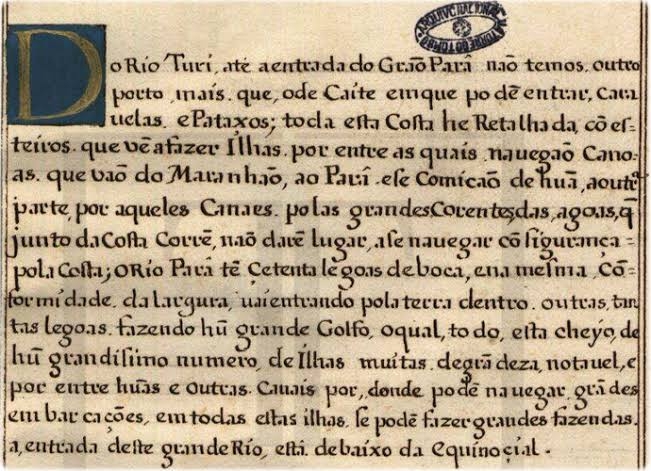 ARQUIVO NACIONAL DA TORRE DO TOMBO
Do Rio Turi, até a entrada do Grão Pará não temos. outro
porto mais. que, o de Caite em que podẽ entrar, Cara
uelas. e Pataxos; toda esta Costa he Retalhada, cõ es-
teiros. que vẽ a fazer Ilhas. por entre as quais nauegão Cano-
as. que vaõ do Maranhão, ao Pará. e se Comicão de huã, a outrª
parte, por aqueles Canaes. polas grandes Corentes, das, agoas, q̃
junto da Costa Corrẽ, naõ darẽ lugar, a se nauegar cõ sigurança -
pola Costa; o Rio Pará tẽ Çetenta legoas de boca, e na mesma, Cõ-
formidade. da largura, uai entrando pola terra dentro. outras, tan
tas legoas. fazendo hũ grande Golfo, o qual, to do, esta cheyo, de
hũ grandissimo numero, de Ilhas muitas. de grãdeza, notauel, e
por entre huãs e outras. Canais por, donde podẽ nauegar, grãdes
embarcações, em todas estas ilhas. se podẽ fazer grandes fazendas.
a, entrada deste grande Rio, está debaixo da Equinoçial.